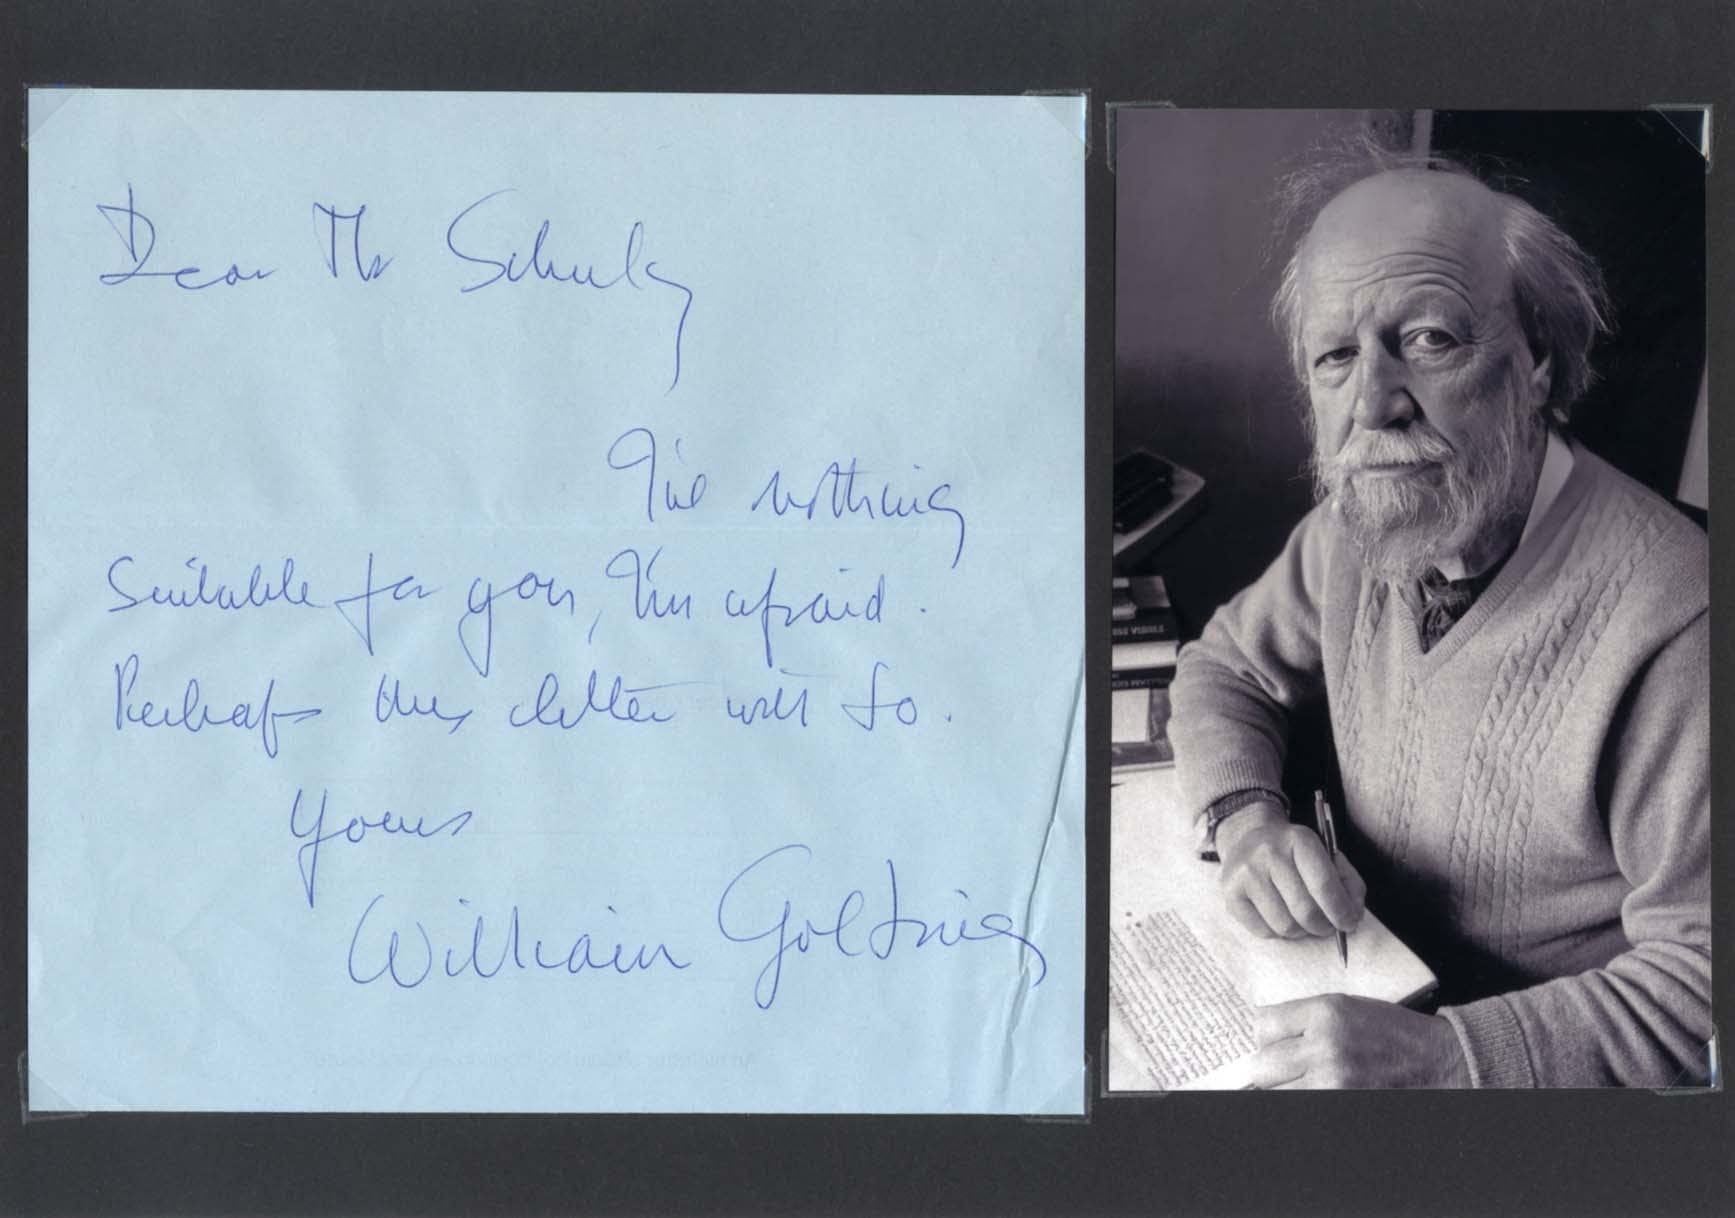 Dear Mr Schulz
I've nothing
suitable for you, I'm afraid.
Perhaps this letter will do.
Yours
William Golding